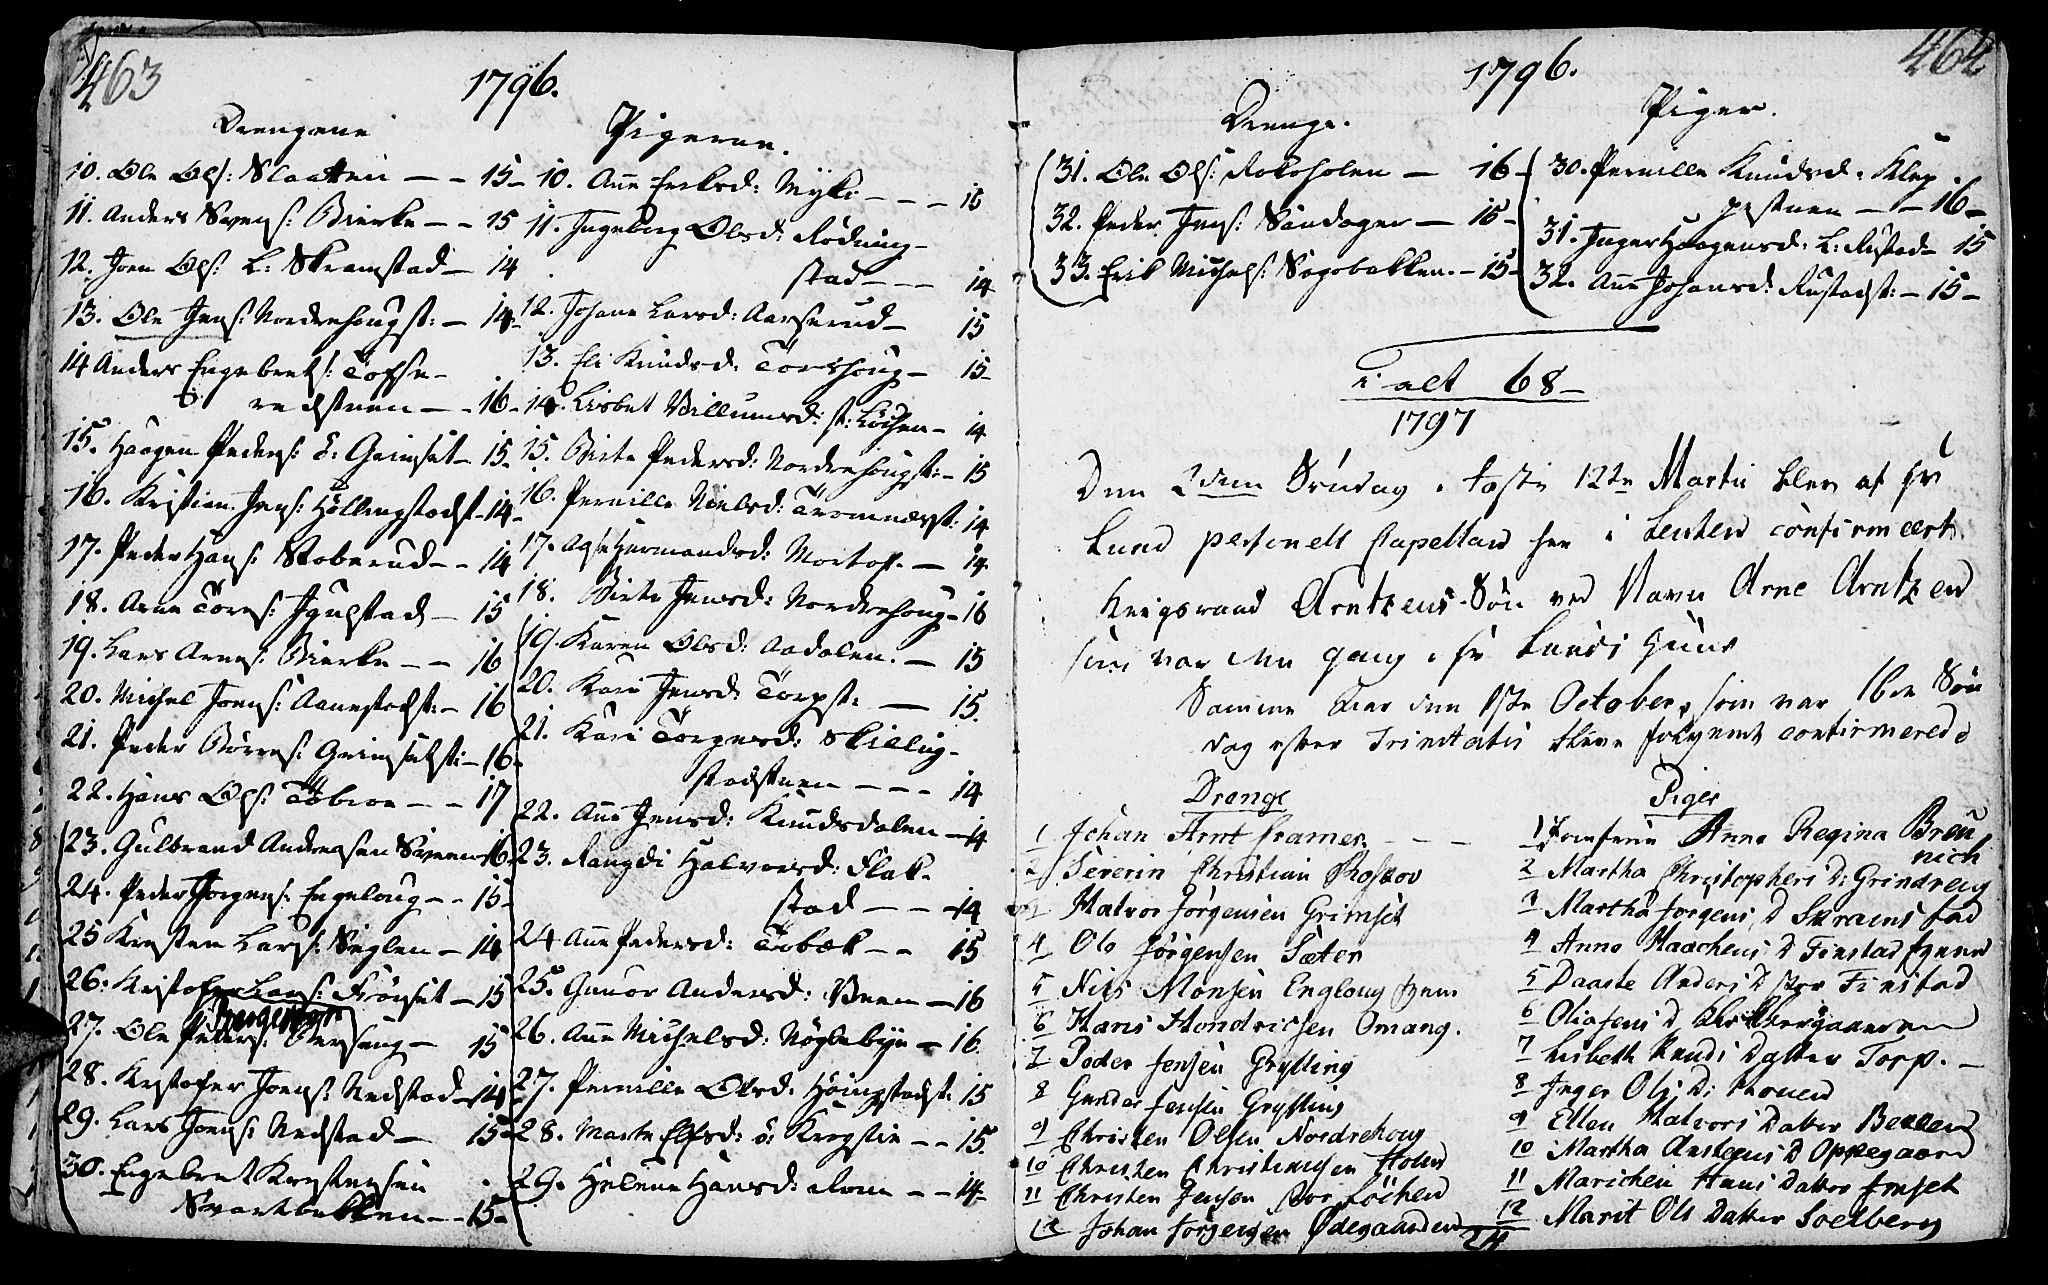 463
1796.
Drengene
10. Ole Ols: Slaatten - - 15 -
11. Anders Svens: Bierke - - 15
12. Joen Ols: L: Skramstad - 14
13. Ole Jens: Nordrehougst: - 14 -
14 Anders Engebrets: Tofse-
redstuen - - 16 -
15. Haagen Peders: Grimset - 15 -
16. Kristian Jens: Høllingstadst - 14 -
17. Peder Hans: Stoberud - - 14
18. Arne Tores: Igulstad - 15
19. Lars Arnes: Bierke - - 16
20. Michel Joens: Aanestadst: - 16
21. Peder Børres: Grimsetst: - 16 -
22. Hans Ols: - - 17
23. Gulbrand Andersen Sveen 16
24. Peder Jørgens: Engeloug - - 15 -
25 Kresten Lars: Seglen - 14
26. Kristofer Lars: Frønset - 15
Bergersen
27. Ole Peders: - 15
28. Kristofer Joens: Nedstad - 14
29. Lars Joens: Nedstad - 15 -
30. Engebret Krestensen
Svartbekken - - 15 -
Pigerne.
10. Ane Eriksd: Myhr - - - 15
11. Ingeborg Olsd: Rødning-
stad - - - 14
12. Johane Larsd: Aarserud - 15
13. Eli Knudsd: Torshoug - 15 -
14. Lisbet Villumsd: st: Løchen - 14
15. Birte Pedersd: Nordrehougst: - 15
16. Pernille Nielsd: Tromnæsst: 14
17. Hermandsd: Mortof. - 14.
18. Birte Jensd: Nordrehoug - 16
19. Karen Olsd: Aadalen. - 15
20. Kari Jensd: Torpst: - 15.
21. Kari Torgersd: Skilling-
stadstuen - - - 14
22. Ane Jensd: Knudsdalen - 14
23. Rangdi Halvorsd: Flak-
stad - - - 14
24 Ane Pedersd: - - 15
25. Gunor Andersd: Veen - 16
26. Ane Michelsd: Nøglebye - 16
27. Pernille Olsd: Høingstadst: 15
28. Marte Elfsd: ø: Krogstie - - 15.
29. Helene Hansd: Rom - - 14 -
464
1796.
Drenge.
31. Ole Ols: Rokoholen - 16 -
32. Peder Jens: Søndager - 15 -
33. Erik Michels: Sagbakken. - 15 -
Piger.
30. Pernille Knudsd: Klep-
pestuen - - 16 -
31. Inger Haagensd: L: Rustad - 15
32. Ane Johansd: Rustadst: - 15 -
i alt 68 -
1797
Den 2den Søndag i Faste 12te Martii blev af Hr
Lund personell Capellan her i Leuten confirmeert
Krigsraad Arntzens Søn ved Navn Arne Arntzen
som var den gang i Hr Lunds Huus
Samme Aar den 1ste October, som var 16de Søn
dag efter Trinitatis bleve følgende confirmerede
Drenge
1 Johan Arnt Cramer. - - -
2 Severin Christian
3 Halvor Jørgensen Grimset
4 Ole Jørgensen Sæter
5 Niels Monsen Engloug
6 Hans Hendrichsen Omang.
7 Peder Jensen Grytting
8 Gunder Jensen Grytting
9 Christen Olsen Nordrehoug
10 Christen Christensen Holen
11 Christen Jensen Stor Løchen
12 Johan Jørgensen Ødegaarden
24
Piger
1 Jomfrue Anne Regina Breu
nich
2 Martha Christophers D: Grindreng
3 Martha Jorgens D Skramstad
4 Anne Haachens D Finstad
5 Daarte Anders D Stor Finstad
6
7 Lisbeth Knuds Datter Torp. -
8 Inger Ols D:
9 Ellen Halvors Datter Becken
10 Martha Arstens D Oppegaard
11 Marichen Hans Datter Imset
12 Marit Ols Datter Soelberg